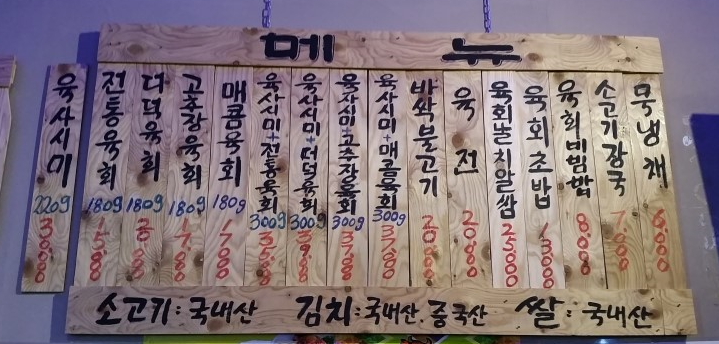 메뉴
육사시미 220g 30,000
전통육회 180g 15,000
더덕육회 180g
고추장육회 180g 17,000
매콤육회 180g 17,000
육사시미+전통육회 300g 35,000
육사시미+더덕육회 300g
육사시미+고추장육회 300g 37,000
육사시미+매콤육회 300g 37,000
바싹불고기 20,000
육전 20,000
육회날치알쌈 25,000
육회초밥 13,000
육회비빔밥 8,000
소고기장국 7,000
묵냉채 6,000
소고기:국내산 김치:국내산.중국산 쌀:국내산